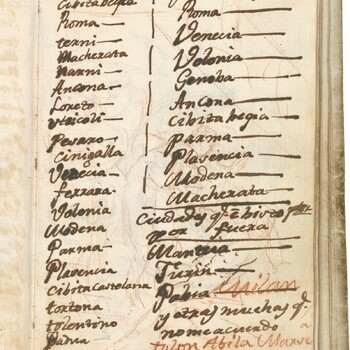 Cibita begia
Roma
terni
Macherata
Narni
Ancona
Loreto
Utricoli
Pesaro
Cinigalla
Venecia
ferrara
Volonia
Modena
Parma
Plasencia
Cibita Castelana
tortona
tolentino
Padua
Roma
Venecia
Volonia
Genoba
Ancona
Cibita begia
parma
Plasencia
Modena
Macherata
Ciudades q.e é bisto
por fuera
Mantua
Turin
Milan
Pabia
y otras muchas q.e
no me acuerdo
a
tulon Abila